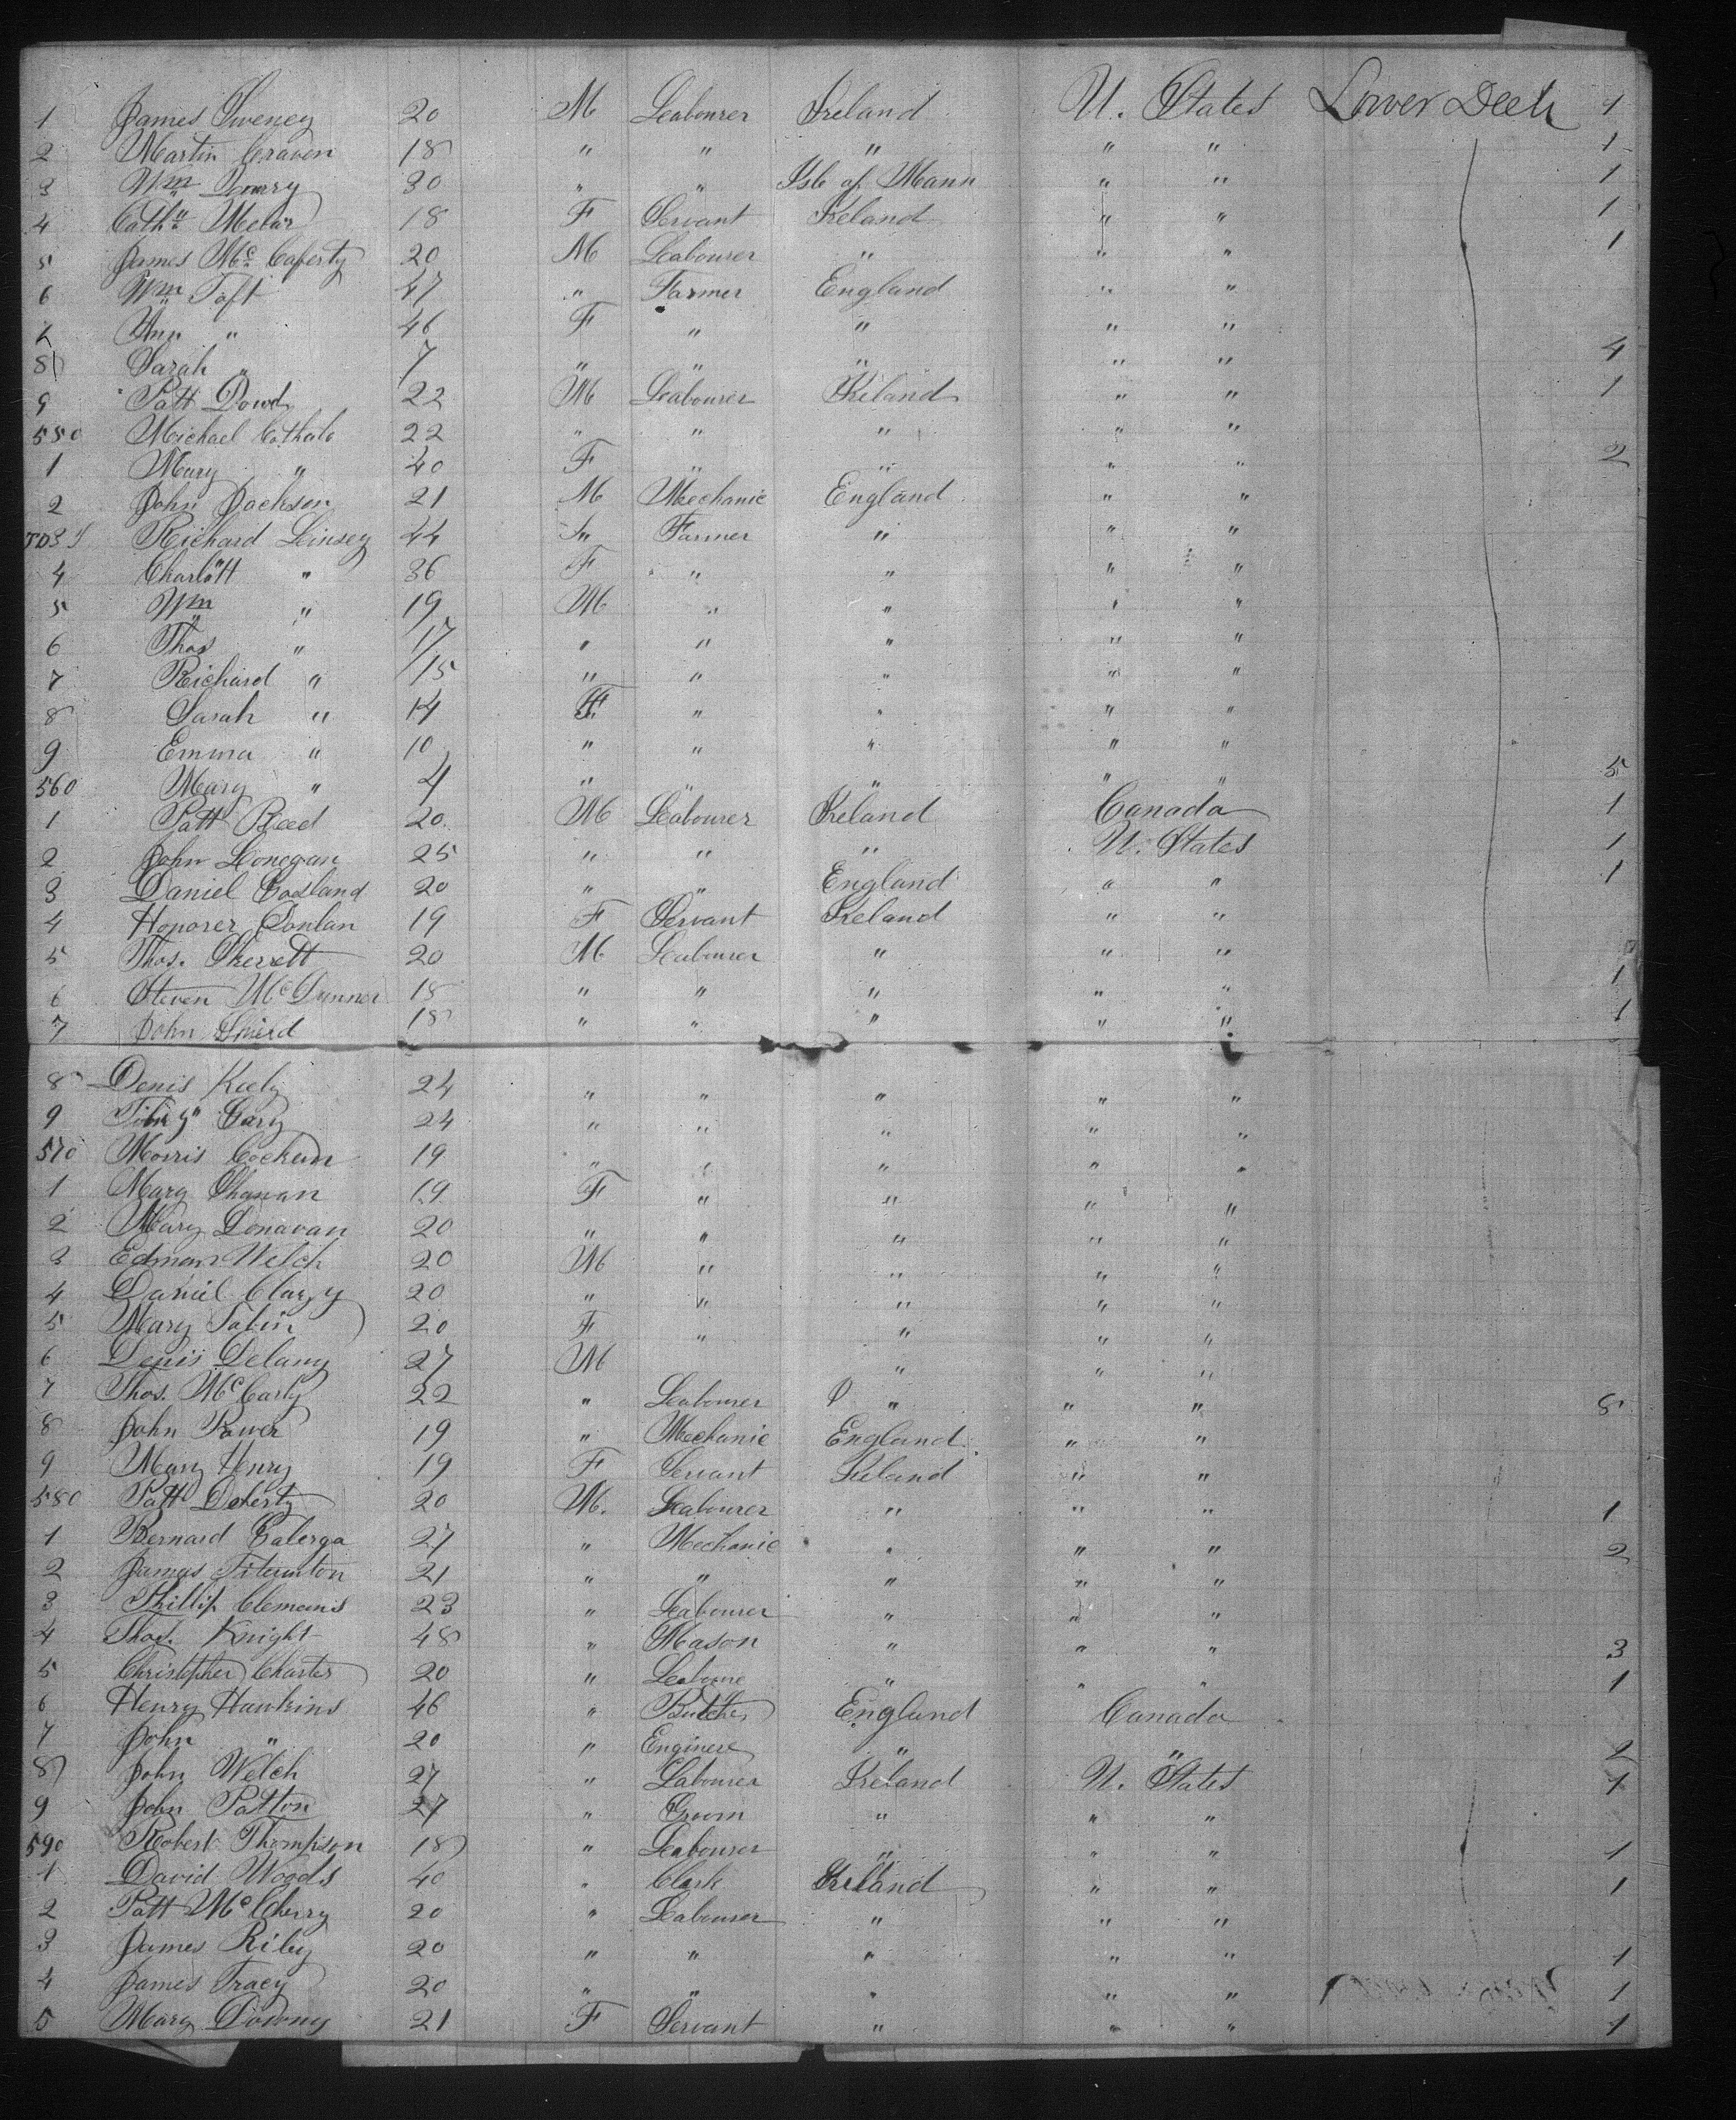 1 James Sweney 20 M Leabourer Ireland U. States Lower Deck 1
2 Martin Craven 18 " " " " " 1
3 Wm 30 " " Isle of Mann " " 1
4 Cath. 18 F Servant Ireland " " 1
5 James Mc Caferty 20 M Leabourer " " " 1
6 Wm Taft 47 " Farmer England " "
7 Ann " 46 F " " " "
8 Sarah " 7 " " " " " 4
9 Patt Dowd 22 M Leabourer Ireland " " 1
550 Michael 22 " " " " "
1 Mary " 40 F " " " " 2
2 John Jackson 21 M Mechanic England " "
3 Richard Linsey 44 " Farmer " " "
4 Charlott " 36 F " " " "
5 Wm " 19 M " " " "
6 Thos " 17 " " " " "
7 Richard " 15 " " " " "
8 Sarah " 14 F " " " "
9 Emma " 10 " " " " "
560 Mary " 4 " " " " " 5
1 Patt Reed 20 M Leabourer Ireland Canada 1
2 John Lonegan 25 " " " U. States 1
3 Daniel 20 " " England " " 1
4 Honorer Conlan 19 F Servant Ireland " "
5 Thos. Sherrett 20 M Leabourer " " "
6 Steven 18 " " " " " 1
7 John 18 " " " " " 1
8 Denis Kiely 24 " " " " "
9 Cary 24 " " " " "
570 Morris 19 " " " " "
1 Mary Shanan 19 F " " " "
2 Mary Donavan 20 " " " " "
3 Edmon Welch 20 M " " " "
4 Daniel Clarzy 20 " " " " "
5 Mary Tobin 20 F " " " "
6 Denis Delany 27 M " " "
7 Thos. McCarty 22 " Leabourer " " " 8
8 John Power 19 " Mechanic England " "
9 Mary Henry 19 F Servant Ireland " "
580 Patt Doherty 20 M. Leabourer " " " 1
1 Bernard 27 " Mechanic " " " 2
2 James 21 " " " " "
3 Phillip Clemans 23 " Leabourer " " "
4 Thos. Knight 48 " Mason " " " 3
5 Christpher Charter 20 " Leaboure " " " 1
6 Henry Hawkins 46 " Butcher England Canada
7 John " 20 " Enginere " " 2
8 John Welch 27 " Labourer Ireland U. States 1
9 John Patton 27 " Groom " " "
590 Robert Thompson 18 " Leabourer " " " 1
1 David Woods 40 " Clark Ireland " " 1
2 Patt McCherry 20 " Leabourer " " "
3 James Riley 20 " " " " " 1
4 James Tracy 20 " " " " " 1
5 Mary Downy 21 F Servant " " " 1